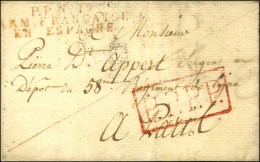 P.P. N° 19
ARM. FRANÇAISE
EN ESPAGNE
Monsieur
Pierre Dt Appert Sergent
Dépot du 58me Régiment de Ligne
P.P.P.P.
A Paris